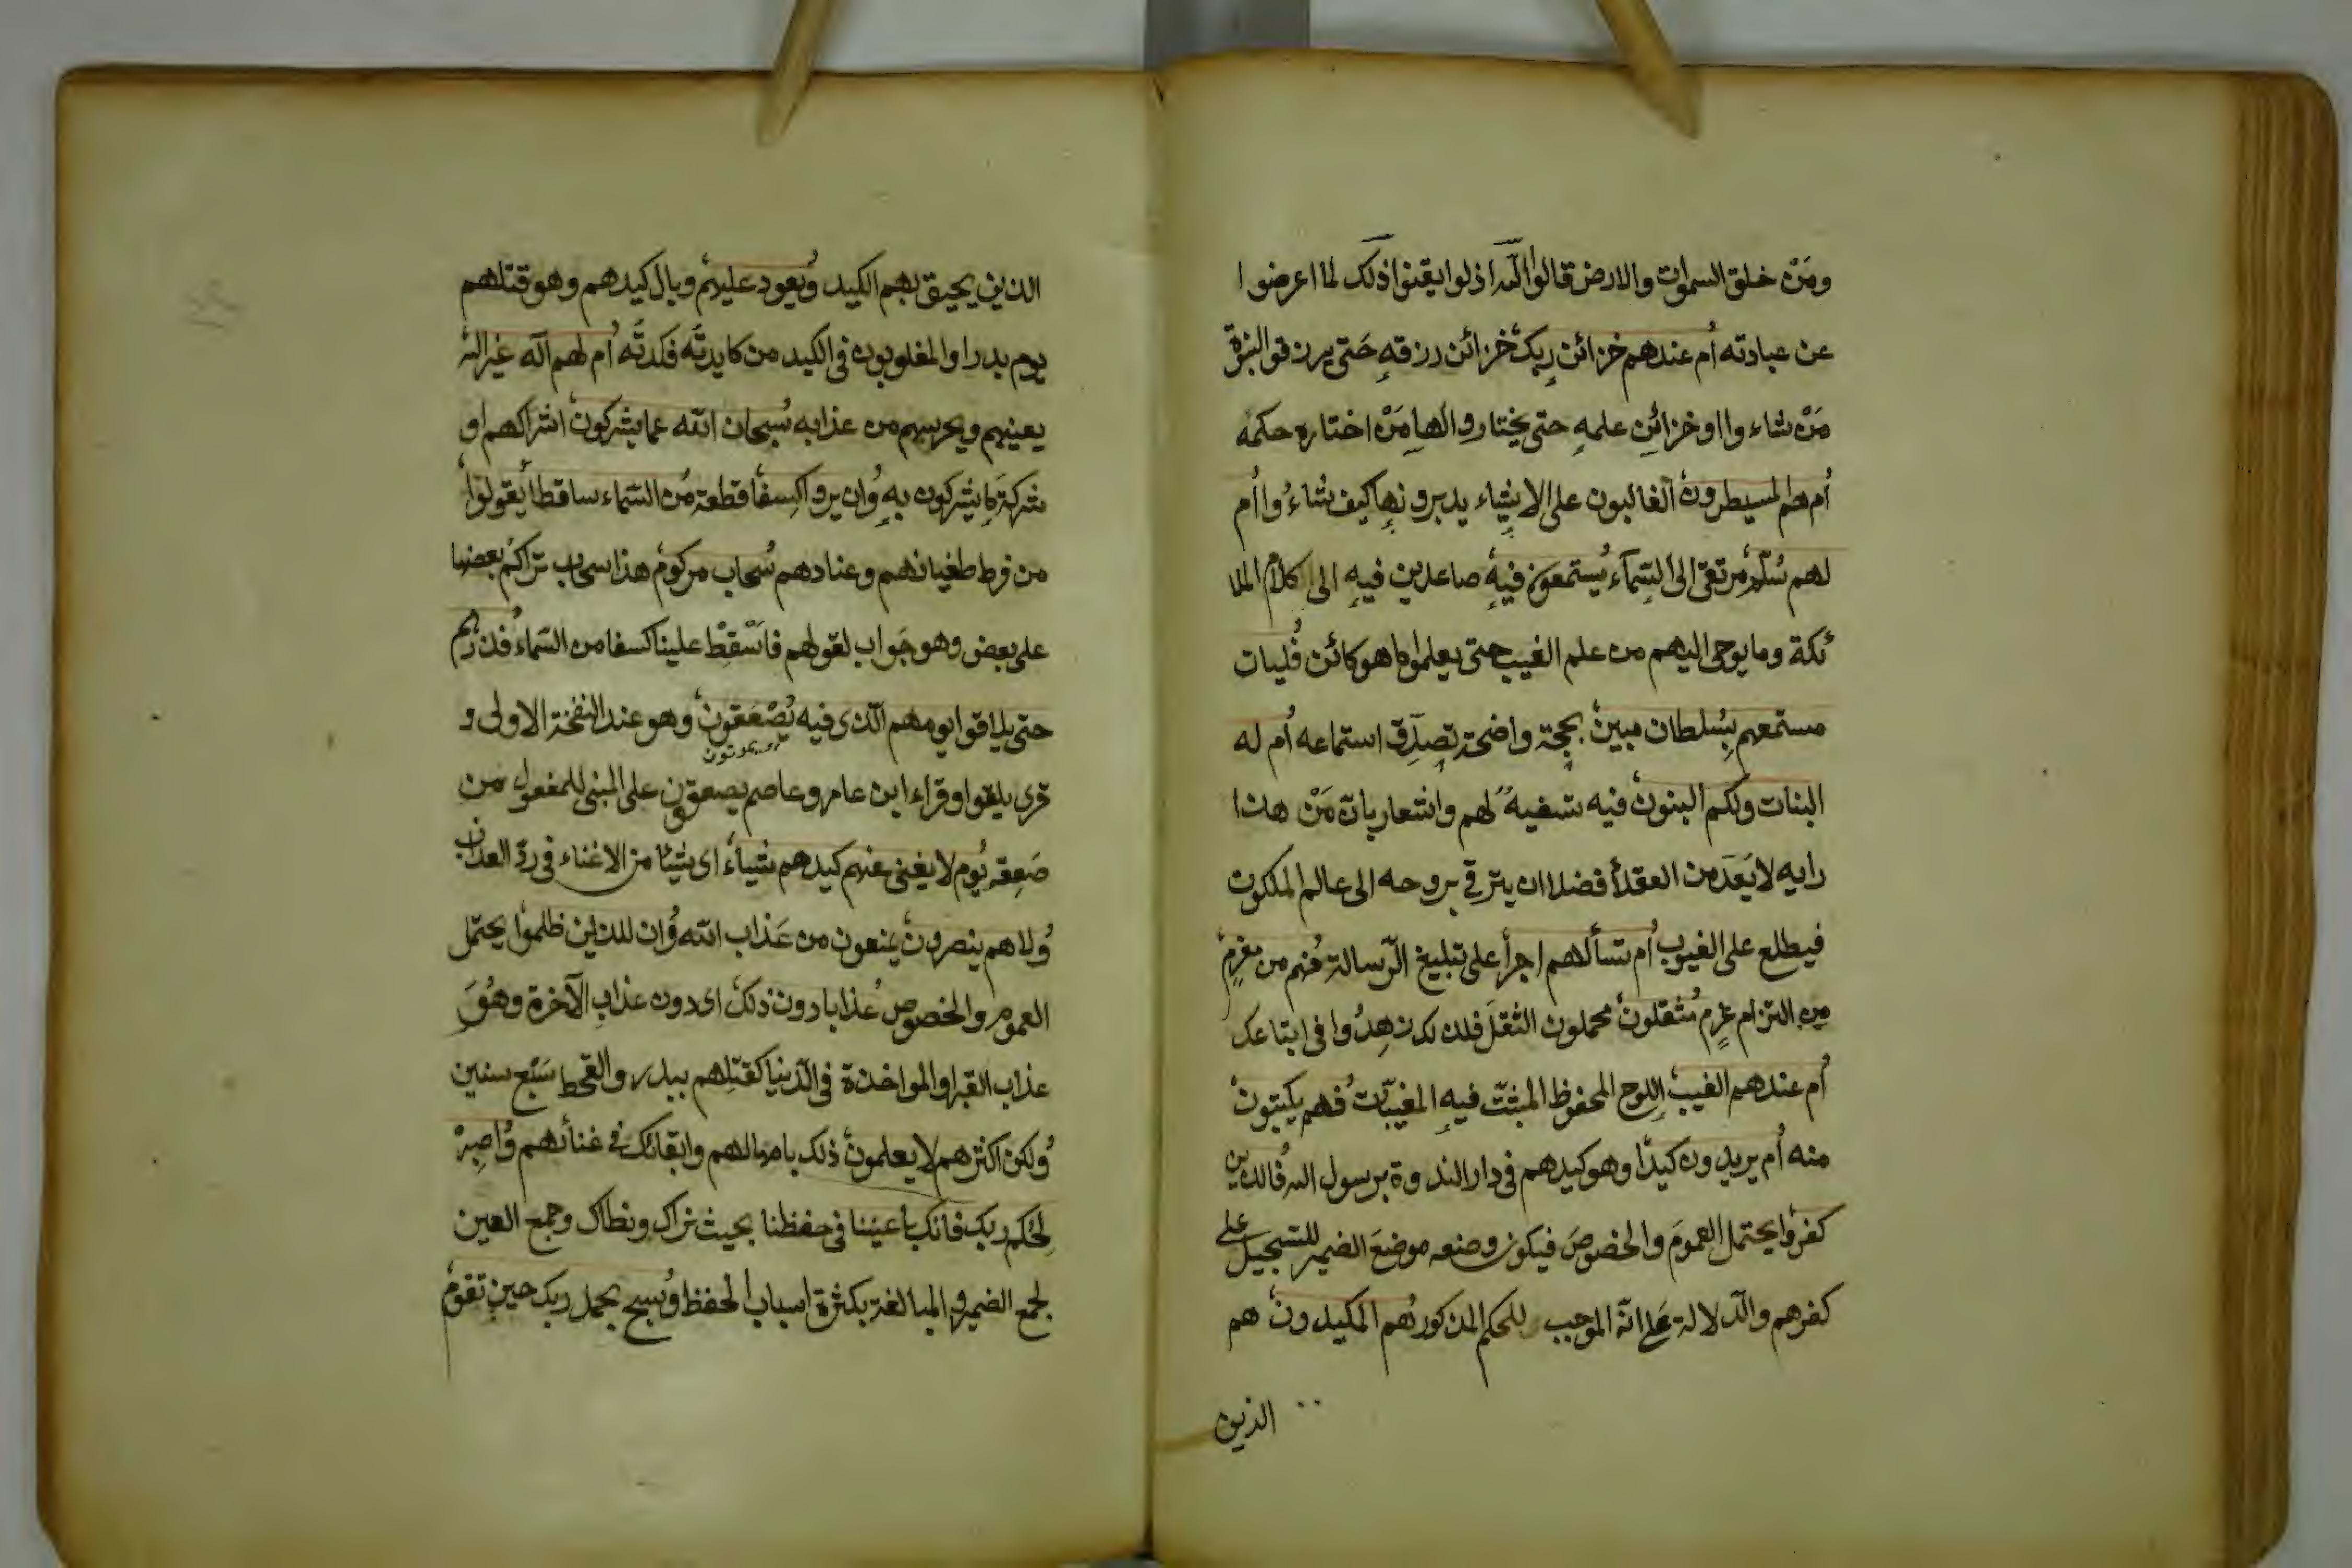 ومَنْ خلق السموات والارض قالوا الله اذ لوا يقنوا ذلك لما اعرضوا
عن عبادته أم عندهم خزائن ربك خزائن رزقهِ حَتى يرزقوا النبوّة
مَنْ شاء وا او خزائن علمهِ حتى يختاروا لها مَنْ اختاره حكمه
أم هم المسيطرون الغالبون على الاشياء يدبرونها كيف شاءوا أم
لهم سُلّم مرتقى الى السّمآء يستمعون فيهِ صاعدين فيهِ الى كلام الملا
ئكة وما يوحى اليهم من علم الغيب حتى يعلموا ما هو كائن فليات
مستمعهم بسُلطان مبين بحجة واضحة تصدّق استماعه أم له
البنات ولكم البنون فيه تسفيهٌ لهم واشعار بان مَنْ هذا
رايه لا يَعَدّ من العقلا فضلا ان يترقى بروحه الى عالم الملكوت
فيطلع على الغيوب أم تسألهم اجرا على تبليغ الرّسالة فهم من مغرمٍ
من التزام غرم مثقلون محملون الثقلَ فلذلك زهدُوا فى اتباعك
أم عندهم الغيب اللوح المحفوظ المثبّت فيهِ المغيبّات فهم يكتبون
منه أم يريدون كيدًا وهو كيدهم فى دار الندوة برسول الله فالذين
كفروا يحتمل العمومَ والخصوصَ فيكون وضعه موضعَ الضمير للتسجيل على
كفرهم والدّلالة عَلى انّه الموجب للحكم المذكور هم المكيدون هم
الذين
الذين يحيق بهم الكيد ويعود عليهم وبال كيدهم وهو قتلهم
يوم بدر او المغلوبون فى الكيد من كايدتُه فكدتُّه أم لهم اله غير الله
يعينهم ويحرسهم من عذابه سُبحان الله عما يشركون اشراكهم او
شركة ما يشركون بهِ وان يروا كِسفا قطعة من السّماء ساقطا يقولوا
من فرط طغيانهم وعنادهم سحاب مركوم هذا سحاب تراكم بعضها
على بعض وهو جَواب لقولهم فاَسْقِطْ علينا كسفا من السّماء فذرهم
حتى يلاقوا يومهم الّذى فيه يُصْعَقون وهو عند النفخة الاولى و
يموتون
قرى يلقوا وقراء ابن عامر وعاصم يصعقون على المبنى للمفعول من
صَعِقه يوم لا يغنى عنهم كيدهم شياء اى شيئا من الاغناء فى ردّ العذاب
ولا هم ينصرون يمنعون من عَذاب الله وان للذين ظلموا يحتمل
العموم والخصوص عذابا دون ذلك اى دون عذابِ الآخرة وهُوَ
عذاب القبر او المواخذة فى الدّنيا كقتلِهم ببدر والقحط سَبْع سنين
ولكن اكثرهم لا يعلمون ذلك بامهالهم وابقائك فى غنائهم واصبِرْ
لحُكم ربك فانك باعيننا فى حفظنا بحيث نراك ونطاك وجمع العين
لجمع الضمير والمبالغة بكثرة اسباب الحفظ وسبح بحمد ربك حين تقوم